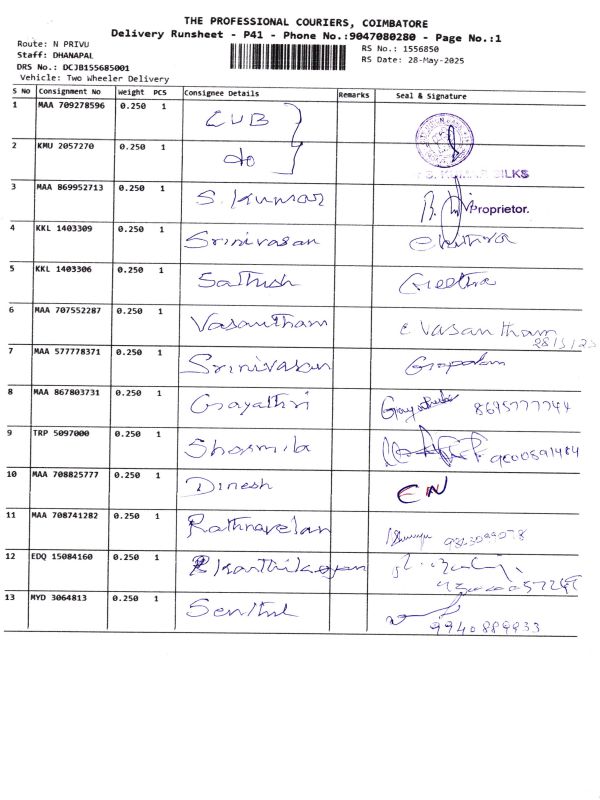 THE PROFESSIONAL COURIERS, COIMBATORE
Delivery Runsheet - P41 - Phone No.:9047080280 - Page No.:1
Route: N PRIVU
RS No.: 1556850
Staff: DHANAPAL
RS Date: 28-May-2025
DRS No.: DCJB155685001
Vehicle: Two Wheeler Delivery
S No Consignment No Weight PCS Consignee Details Remarks Seal & Signature
1 MAA 709278596 0.250 1 CUB
2 KMU 2057270 0.250 1 do
SILKS
3 MAA 869952713 0.250 1 S. Kumar Proprietor.
4 KKL 1403309 0.250 1 Srinivasan
5 KKL 1403306 0.250 1 Sathish Geetha
6 MAA 707552287 0.250 1 Vasantham C Vasantham
7 MAA 577778371 0.250 1 Srinivasan
8 MAA 867803731 0.250 1 Gayathri 8695777744
9 TRP 5097000 0.250 1 Sharmila
10 MAA 708825777 0.250 1 Dinesh EN
11 MAA 708741282 0.250 1 Rathnavelan
12 EDQ 15084160 0.250 1 Karthikeyan
13 MYD 3064813 0.250 1 Senthil
9940889933